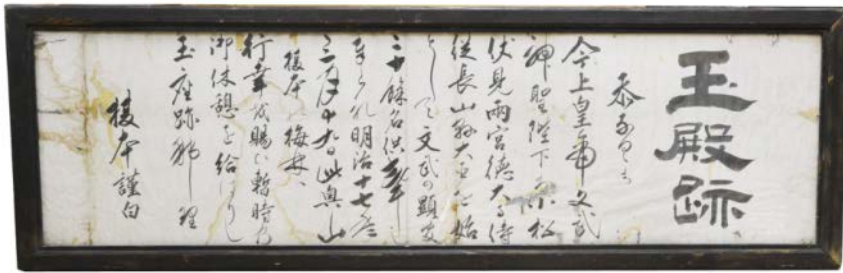 玉殿跡
恭
今上皇帝文武
神聖陛下小松
伏見両宮徳大寺侍
従長山縣大臣を始
として文武の顕官
三十餘名供奉し
奉られ明治十七年
三月 此奥山
榎本 梅林へ
行幸成賜ひ暫時
御休憩を給はりし
玉座跡 
榎本謹白